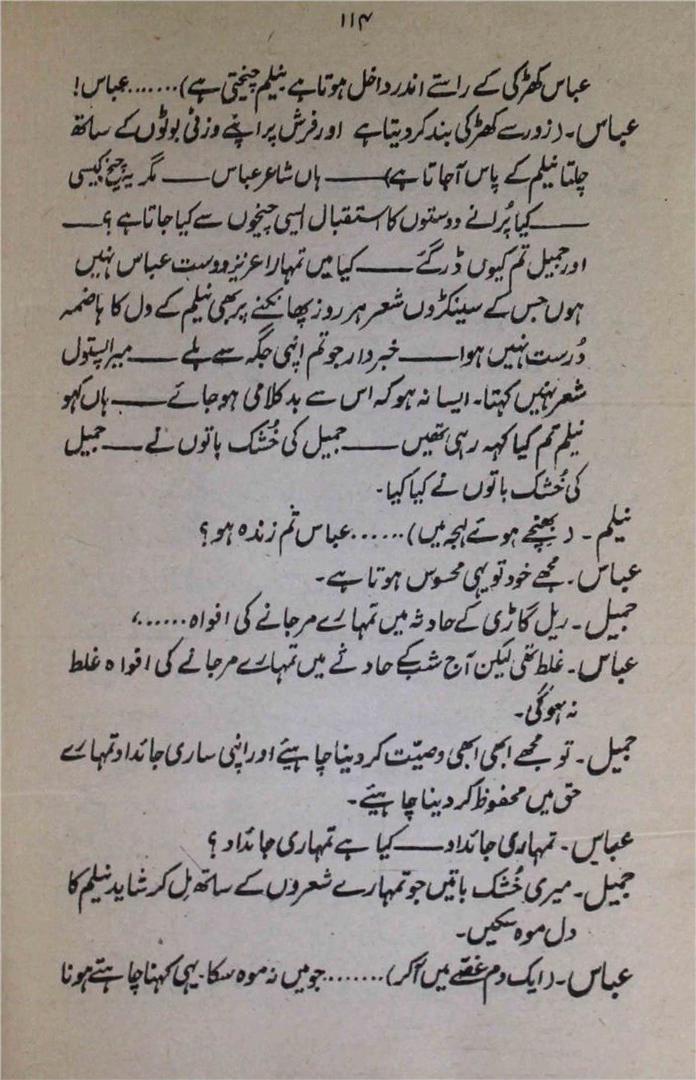 ۱۱۴
عباس کھڑکی کے راستے اندر داخل ہوتا ہے نیلم چیختی ہے).......عباس!
عباس۔ (زور سے کھڑکی بند کر دیتا ہے اور فرش پر اپنے وزنی بوٹوں کے ساتھ
چلتا نیلم کے پاس آ جاتا ہے)——ہاں شاعر عباس——مگر یہ چیخ کیسی
——کیا پُرانے دوستوں کا استقبال ایسی چیخوں سے کیا جاتا ہے؟——
اور جمیل تم کیوں ڈر گئے——کیا میں تمہارا عزیز دوست عباس نہیں
ہوں جس کے سینکڑوں شعر ہر روز پھانکنے پر بھی نیلم کے دل کا ہاضمہ
دُرست نہیں ہوا——خبردار جو تم اپنی جگہ سے ہلے——میرا پستول
شعر نہیں کہتا۔ ایسا نہ ہو کہ اس سے بدکلامی ہو جائے——ہاں کہو
نیلم تم کیا کہہ رہی تھیں——جمیل کی خُشک باتوں نے——جمیل
کی خُشک باتوں نے کیا کیا۔
نیلم۔ (بھنچے ہوئے لہجہ میں)......عباس تُم زندہ ہو؟
عباس۔ مجھے خود تو یہی محسوس ہوتا ہے۔
جمیل۔ ریل گاڑی کے حادثہ میں تمہارے مر جانے کی افواہ......،
عباس۔ غلط تھی لیکن آج شب کے حادثے میں تمہارے مر جانے کی افواہ غلط
نہ ہو گی۔
جمیل۔ تو مجھے ابھی ابھی وصیّت کر دینا چاہیئے اور اپنی ساری جائداد تمہارے
حق میں محفوظ کر دینا چاہیئے۔
عباس۔ تمہاری جائداد——کیا ہے تمہاری جائداد؟
جمیل۔ میری خُشک باتیں جو تمہارے شعروں کے ساتھ مِل کر شاید نیلم کا
دل موہ سکیں۔
عباس۔ (ایک دم غصّے میں آ کر).......جو میں نہ موہ سکا۔ یہی کہنا چاہتے ہو نا